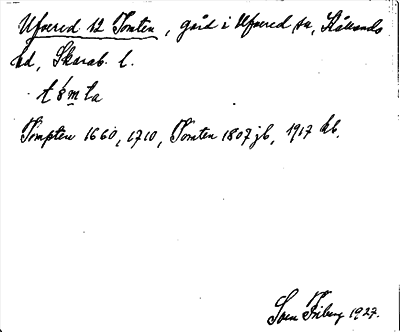 Ufvered 12 Tomten, gård i Ufvered sn, Kållands
hd, Skarab. l.
Tompten 1660, 1710, Tomten 1807 jb, 1917 kb.
Sven Friberg 1927.